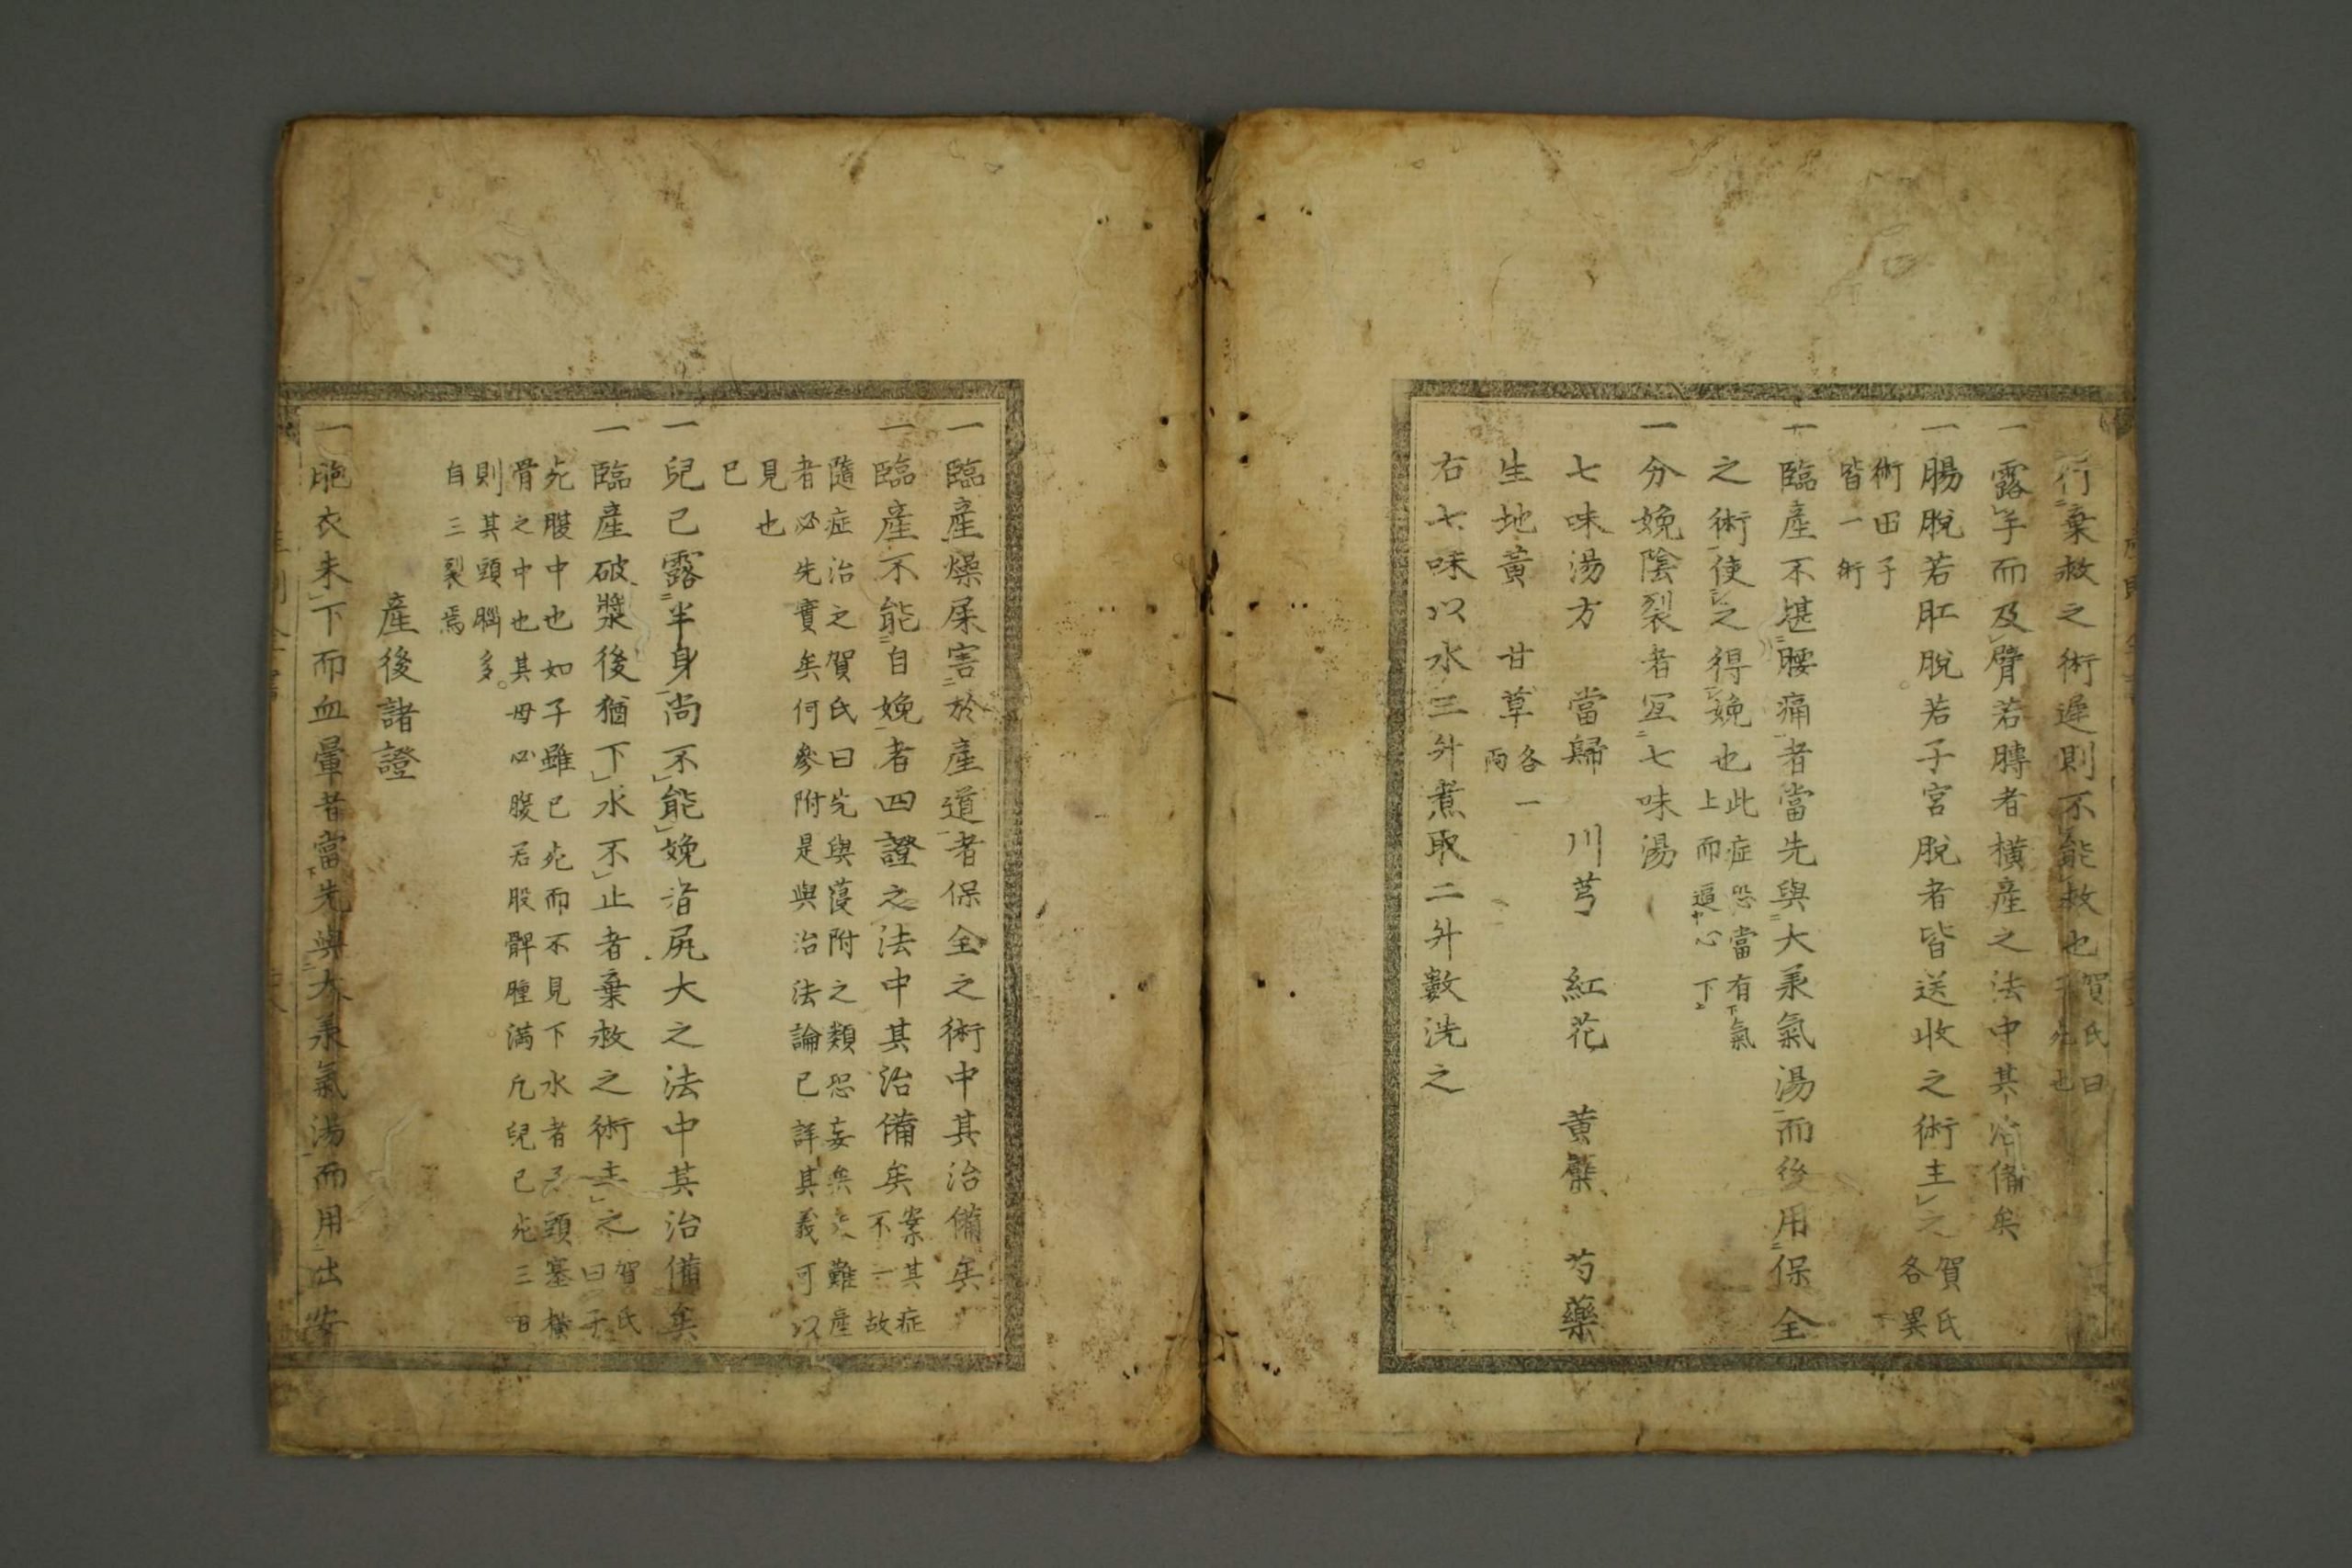 行棄救之術遲則不能救也賀氏曰子死也
一露手而及臂若膊者橫産之法中其治備矣
一腸脫若肛脫若子宮脫者皆送收之術主之賀氏各異
術田子皆一術
一臨産不堪腰痛者當先與大承氣湯而後用保全
之術使之得娩也此症恐當有氣上而逼心下
一分娩陰裂者宜七味湯
七味湯方 當歸 川芎 紅花 黃蘗 芍藥
生地黃 甘草各一兩
右七味以水三升煮取二升數洗之
一臨産燥屎害於産道者保全之術中其治備矣
一臨産不能自娩者四證之法中其治備矣案其症不一故
隨症治之賀氏曰先與葠附之類恐妄矣夫難産
者必先實矣何參附是與治法論已詳其義可以
見也
已
一兒已露半身尚不能娩者尻大之法中其治備矣
一臨産破漿後猶下水不止者棄救之術主之賀氏曰子
死腹中也如子雖已死而不見下水者頭塞橫
骨之中也其母必腹若股髀腫滿凡兒已死三日
則其頭腦多
自三裂焉
産後諸證
一胞衣未下而血暈者當先與大承氣湯而用出安